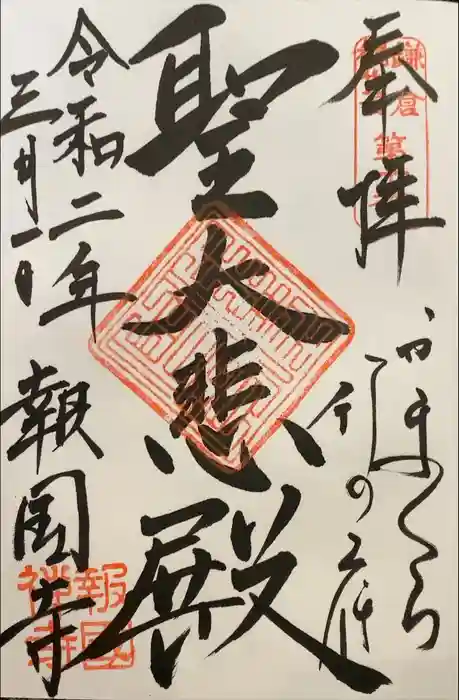 奉拝
鎌倉
かまくら
聖大悲殿
令和二年
三月一日
報国寺
報國
禅寺